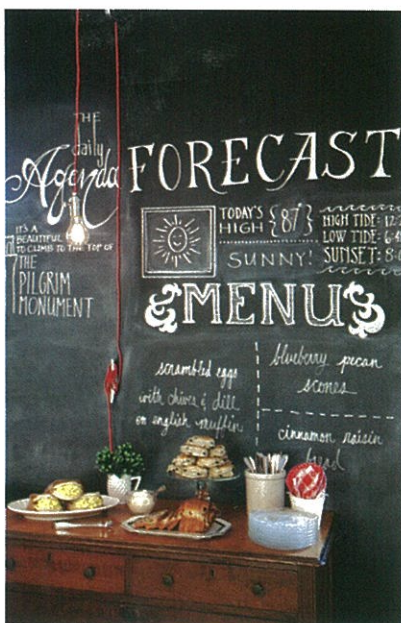 THE
daily
Agenda
IT'S A
BEAUTIFUL
TO CLIMB TO THE TOP OF
THE
PILGRIM
MONUMENT
FORECAST
TODAY'S
HIGH {87°}
SUNNY!
HIGH TIDE: 12:
LOW TIDE: 6:
SUNSET: 8:
MENU
scrambled eggs
with chives & dill
on english muffin
blueberry pecan
scones
cinnamon raisin
bread